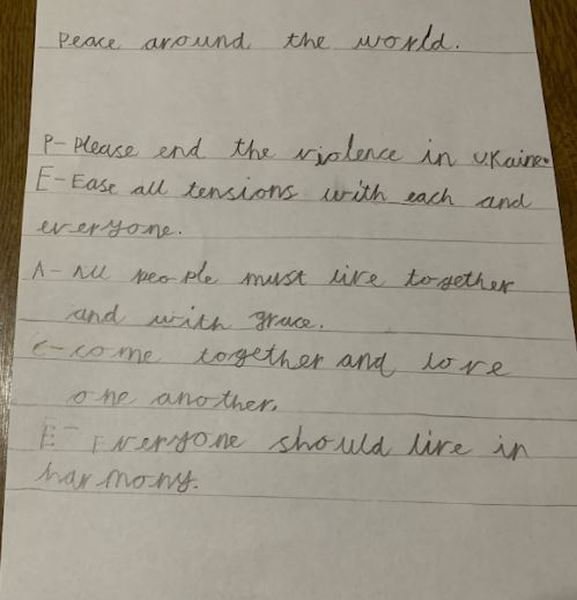 Peace around the world.
P-Please end the violence in UKaine.
E-Ease all tensions with each and
everyone.
A- All people must live together
and with grace.
C-come together and love
one another.
E- Everyone should live in
harmony.